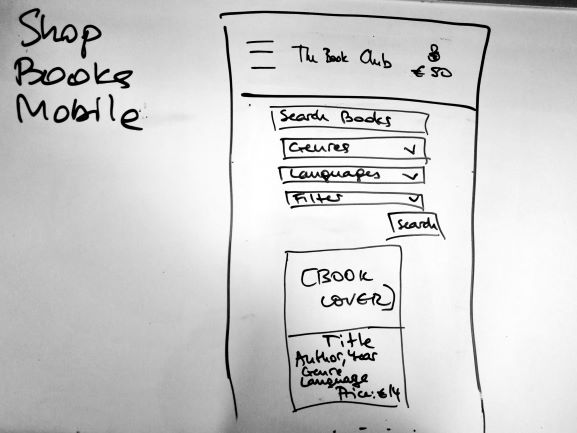 Shop
Books
Mobile
The Book Club
€ 50
Search Books
Genres
Languages
Filter
Search
[BOOK
COVER]
Title
Author, Year
Genre
Language
Price: €14